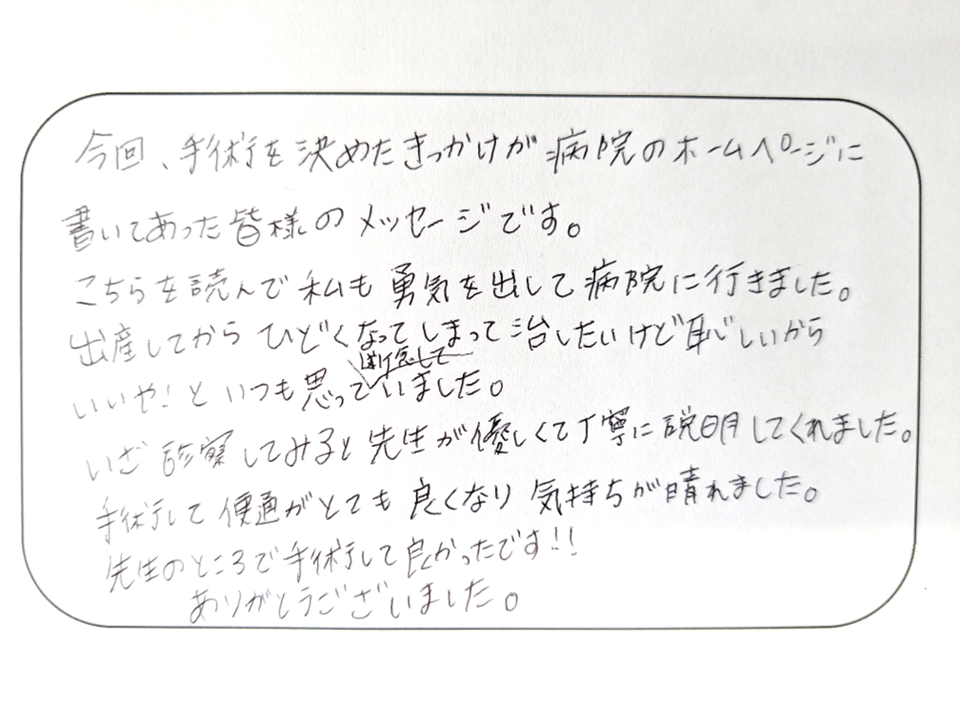 今回、手術を決めたきっかけが病院のホームページに
書いてあった皆様のメッセージです。
こちらを読んで私も勇気を出して病院に行きました。
出産してからひどくなってしまって治したいけど恥じしいから
いいや!といつも思っていました。
断念して
いざ診察してみると先生が優しくて丁寧に説明してくれました。
手術して便通がとても良くなり気持ちが晴れました。
先生のところで手術して良かったです!!
ありがとうございました。